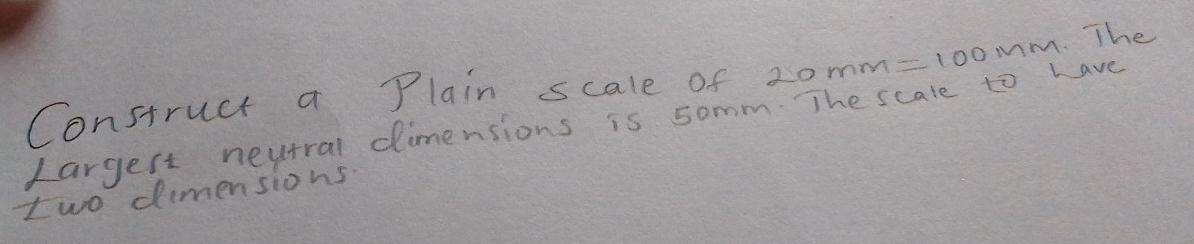 Construct a Plain scale of 20mm=100mm. The
Largest neutral dimensions is 50mm. The scale to have
two dimensions.